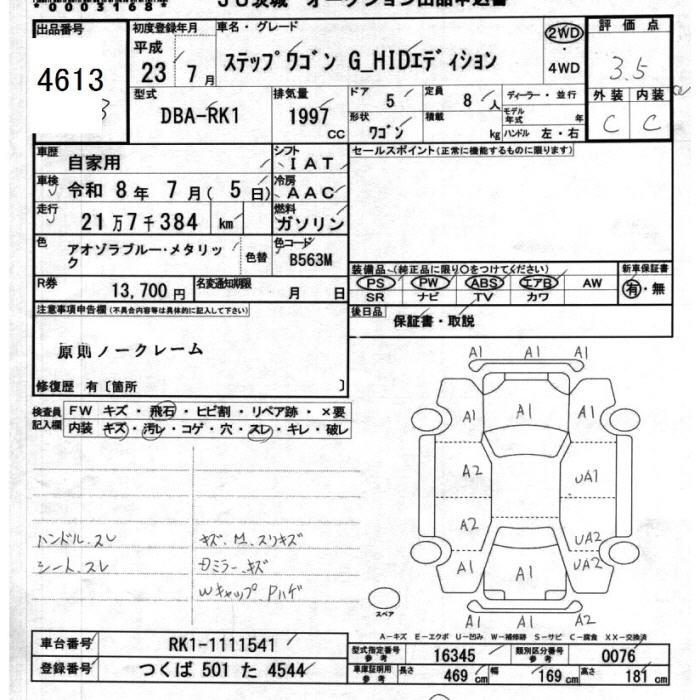 JU茨城 オークション出品申込書
出品番号
4613
3
初度登録年月
平成
23 / 7月
車名・グレード
ステップワゴン G_HIDエディション
2WD
・
4WD
評価点
3.5
外装 内装
C C
型式
DBA-RK1
排気量
1997
CC
ドア
5
定員
8 人
ディーラー・並行
モデル年式 年
形状
ワゴン
積載
kg
ハンドル 左・右
車歴
自家用
シフト
IAT
車検
令和 8年 7月( 5日)
冷房
AAC
走行
21万7千384 km
燃料
ガソリン
色
アオゾラブルー・メタリック
色替
色コード
B563M
R券
13,700円
名変通知期限
月 日
セールスポイント(正常に機能するものに限ります)
装備品(純正品に限り○をつけてください)
新車保証書
PS PW ABS エアB AW
有・無
SR ナビ TV カワ
後日品
保証書・取説
注意事項申告欄(不具合内容等は具体的に記入して下さい)
原則ノークレーム
修復歴 有〔箇所 〕
検査員記入欄
FW キズ・飛石・ヒビ割・リペア跡・×要
内装 キズ・汚レ・コゲ・穴・スレ・キレ・破レ
ハンドル.スレ
シート.スレ
キズ.M.スリキズ
Dミラー.キズ
Wキャップ.Pハゲ
A1 A1 A1
A1 A1 A1
A2 UA1
A2 UA2
A1 A1 UA2
A1 A1 A2
スペア
A-キズ E-エクボ U-凹み W-補修跡 S-サビ C-腐食 XX-交換済
車台番号
RK1-1111541
登録番号
つくば 501 た 4544
型式指定番号
参考
16345
類別区分番号
参考
0076
車庫証明用
参考
長さ
469 cm
幅
169 cm
高さ
181 cm